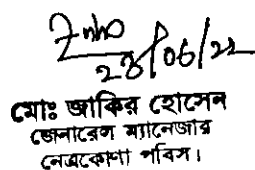 23/06/22
মোঃ জাকির হোসেন
জেনারেল ম্যানেজার
নেত্রকোণা পবিস।